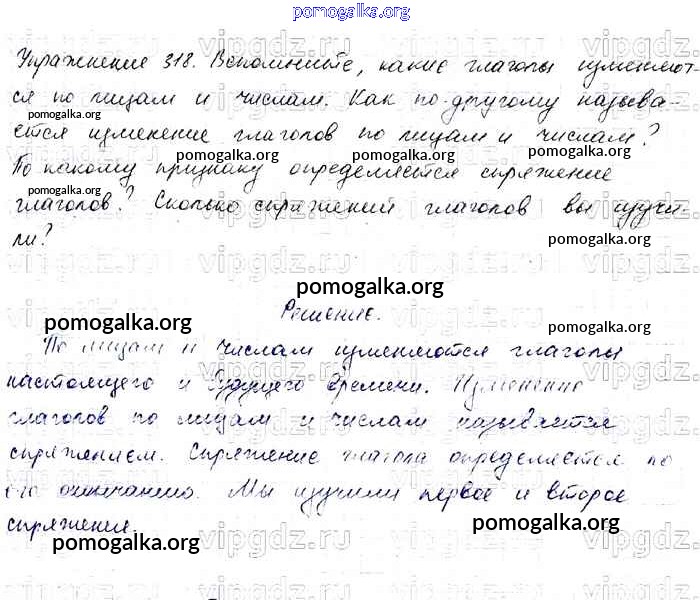 pomogalka.org
Упражнение 318. Вспомните, какие глаголы изменяют-
ся по лицам и числам. Как по-другому называ-
pomogalka.org
ется изменение глаголов по лицам и числам?
pomogalka.org pomogalka.org pomogalka.org
По какому признаку определяется спряжение
pomogalka.org
глаголов? Сколько спряжений глаголов вы изучи
ли?
pomogalka.org
pomogalka.org
Решение.
pomogalka.org pomogalka.org
По лицам и числам изменяются глаголы
настоящего и будущего времени. Изменение
глаголов по лицам и числам называется
спряжением. Спряжение глагола определяется по
его окончанию. Мы изучили первое и второе
спряжение.
pomogalka.org pomogalka.org
vipgdz.ru